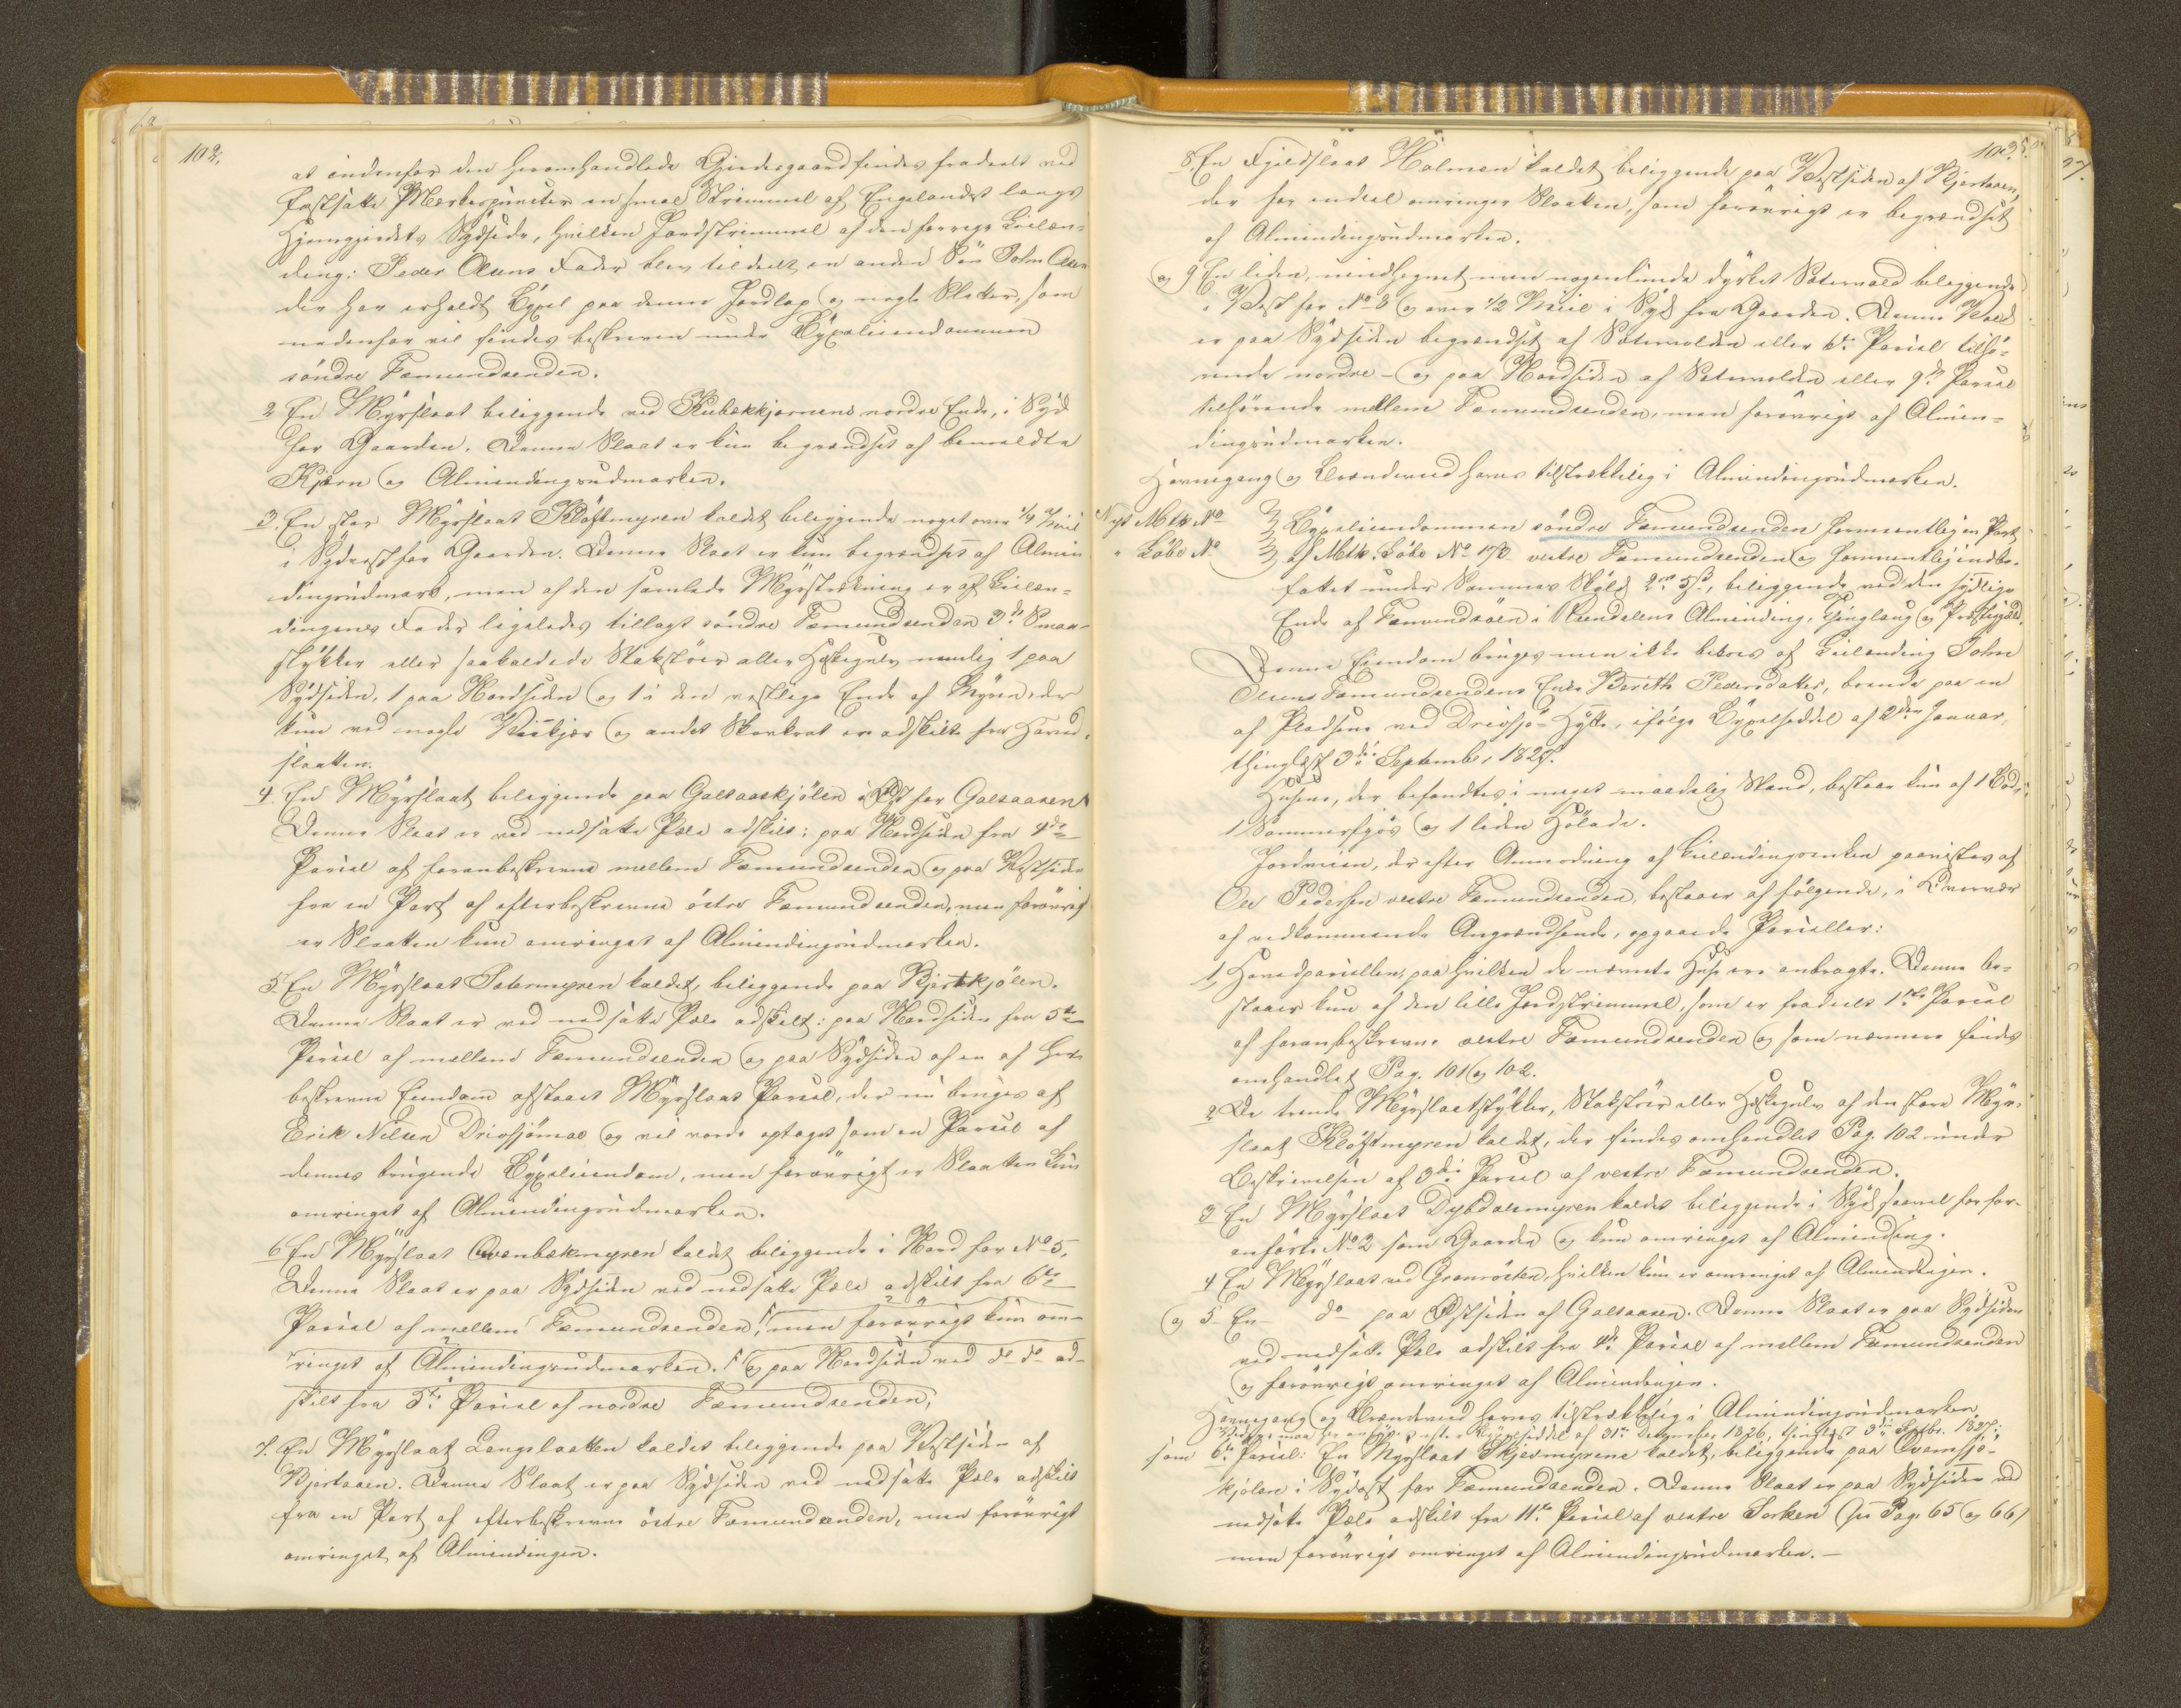 102.
at indenfor den heromhandlede Gjerdesgaard findes fradeelt ved
fastsatte Mærkespuncter en smal Strimmel af Engelandet langs
Hjemgjerdets Sydside, hvilken Jordstrimmel af den forrige Leilæn-
ding: Peder Olsens Fader blev tildeelt en anden Søn John Olsen
der har erholdt Bÿxel paa denne Jordlap og nogle Slotter, som
nedenfor vil findes beskreven under Bÿxeleiendommen
söndre Fæmundsenden.
2 En Mÿrslaat beliggende ved Kubækkjærnens nordre Ende, i Syd
for Gaarden. Denne Slaat er kun begrændset af bemeldte
Kjærn og Almindingsudmarken.
3. En stor Mÿrslaat Klöftmyren kaldet beliggende noget over 1/4 Miil
i Sydvest for Gaarden. Denne Slaat er kun begrændset af Almin-
dingsudmark, men af den samlede Mÿrstrækning er af Leilæn-
dingens Fader ligeledes tillagt söndre Fæmundsenden 3de Smaa-
stÿkker eller saakaldede Stakstöer eller Høskegulv nemlig 1 paa
Sÿdsiden, 1 paa Nordsiden og 1 i den vestlige Ende af Mÿren, der
kun ved nogle Viukjær og andet Skovkrat er adskilte fra Hoved-
slaatten.
4. En Mÿrslaat beliggende paa Galsaaskjölen i Øst for Galsaasen
Denne Slaat er ved nedsatte Pæle adskilt: paa Nordsiden fra 4de
Parcel af foranbeskrevne mellem Fæmundsenden og paa Vestsiden
fra en Part af efterbeskrevne östre Fæmundsenden, men forövrigt
er Slaatten kun omringet af Almindingsudmarken.
5. En Mÿrslaat Sætermyren kaldet, beliggende paa Bjertkjölen.
Denne Slaat er ved nedsatte Pæle adskilt: paa Nordsiden fra 5te
Parcel af mellem Fæmundsenden og paa Sÿdsiden af en af her-
beskrevne Eiendom afstaaet Mÿrslaat Parcel, der nu bruges af
Erik Nilsen Drivsjömoe og vil vorde optaget som en Parcel af
dennes brugende Bÿxeleiendom, men forövrigt er Slaatten kun
omringet af Almindingsudmarken.
6 En Mÿrslaat Qvænbækmyren kaldet beliggende i Nord for No 5.
Denne Slaat er paa Sÿdsiden ved nedsatte Pæle adskilt fra 6te
Parcel af mellem Fæmundsenden, men forövrigt kun om-
ringet af Almindingsudmarken. og paa Nordsiden ved do do ad-
skilt fra 5te Parcel af nordre Fæmundsenden,
7. En Mÿrslaat Langslaatten kaldet beliggende paa Vestsiden af
Bjertaaen. Denne Slaat er paa Sÿdsiden ved nedsatte Pæle adskilt
fra en Part af efterbeskrevne östre Fæmundsenden, men forövrigt
omringet af Almindingen.
103.
8. En Fjeldslaat Holmen kaldet beliggende paa Vestsiden af Bjertaaen,
der for endeel omringer Slaatten, som forövrigt er begrændset
af Almindingsudmarken.
og 9 En liden, uindhegnet men nogenlunde dÿrket Sætervold beliggende
i Vest for No 8 og over 1/2 Miil i Sÿd fra Gaarden. Denne Vold
er paa Sÿdsiden begrændset af Sætervolden eller 6te Parcel tilhö-
rende nordre – og paa Nordsiden af Sætervolden eller 9de Parcel
tilhörende mellem Fæmundsenden, men forövrigt af Almin-
dingsudmarken.
Havnegang og Brændeved haves tilstrækkelig i Almindingsudmarken.
Nyt Mtk No
" Löbe No
Bÿxeleiendommen söndre Fæmundsenden formeentlig en Part
af Mtk. Löbe No 173 vestre Fæmundsenden og formeentlig indbe-
fattet under Sammes Skÿld 2 5, beliggende ved den sydlige
Ende af Fæmundsöen i Rendalens Alminding, Thinglaug og Præstegjæld.
Denne Eiendom bruges men ikke beboes af Leilænding John
Olsens Fæmundsendens Enke Berith Pedersdatter, boende paa en
af Pladsene ved Drivsjø-Hÿtte, ifölge Bÿxelseddel af 2den Januar,
thinglæst 3die September 1827.
Husene, der befandtes i meget maadelig Stand, bestaar kun af 1 Bod,
1 Sommerfjös og 1 liden Hölade.
Jordveien, der efter Anmodning af Leilændingsenken paavistes af
Ole Pedersen vestre Fæmundsenden, bestaaer af fölgende, i Overvær
af vedkommende Angrændsende, opgaaede Parceller:
1, Hovedparcellen, paa hvilken de nævnte Huse ere anbragte. Denne be-
staaer kun af den lille Jordstrimmel, som er fradeelt 1ste Parcel
af foranbeskrevne vestre Fæmundsenden og som nærmere findes
omhandlet Pag. 101 og 102.
2 De trende Mÿrslaatstÿkker, Stakstöer eller Høskegulv af den store Mÿr-
slaat Klöftmyren kaldet, der findes omhandlet Pag. 102 under
Beskrivelsen af 3die Parcel af vestre Fæmundsenden.
3 En Mÿrslaat Dybdalsmyren kaldet beliggende i Sÿd saavel for for-
anförte No 2 som Gaarden og kun omringet af Alminding.
4 En Mÿrslaat ved Grønrösten, hvilken kun er omringet af Almindingen.
og 5 En do paa Østsiden af Galsaasen. Denne Slaat er paa Sÿdsiden
ved nedsatte Pæle adskilt fra 4de Parcel af mellem Fæmundsenden
og forövrigt omringet af Almindingen.
Havnegang og Brændeved haves tilstrækkelig i Almindingsudmarken
af 31te December 1826, thinglæst 3die Septbr. 1827:
som 6te Parcel: En Myrslaat Skjevmyrene kaldet, beliggende paa Qvemsjö-
kjölen i Sÿdost for Fæmundsenden. Denne Slaat er paa Sÿdsiden ved
nedsatte Pæle adskilt fra 11te Parcel af vestre Sorken (see Pag. 65 og 66)
men forövrigt omringet af Almindingsudmarken. –